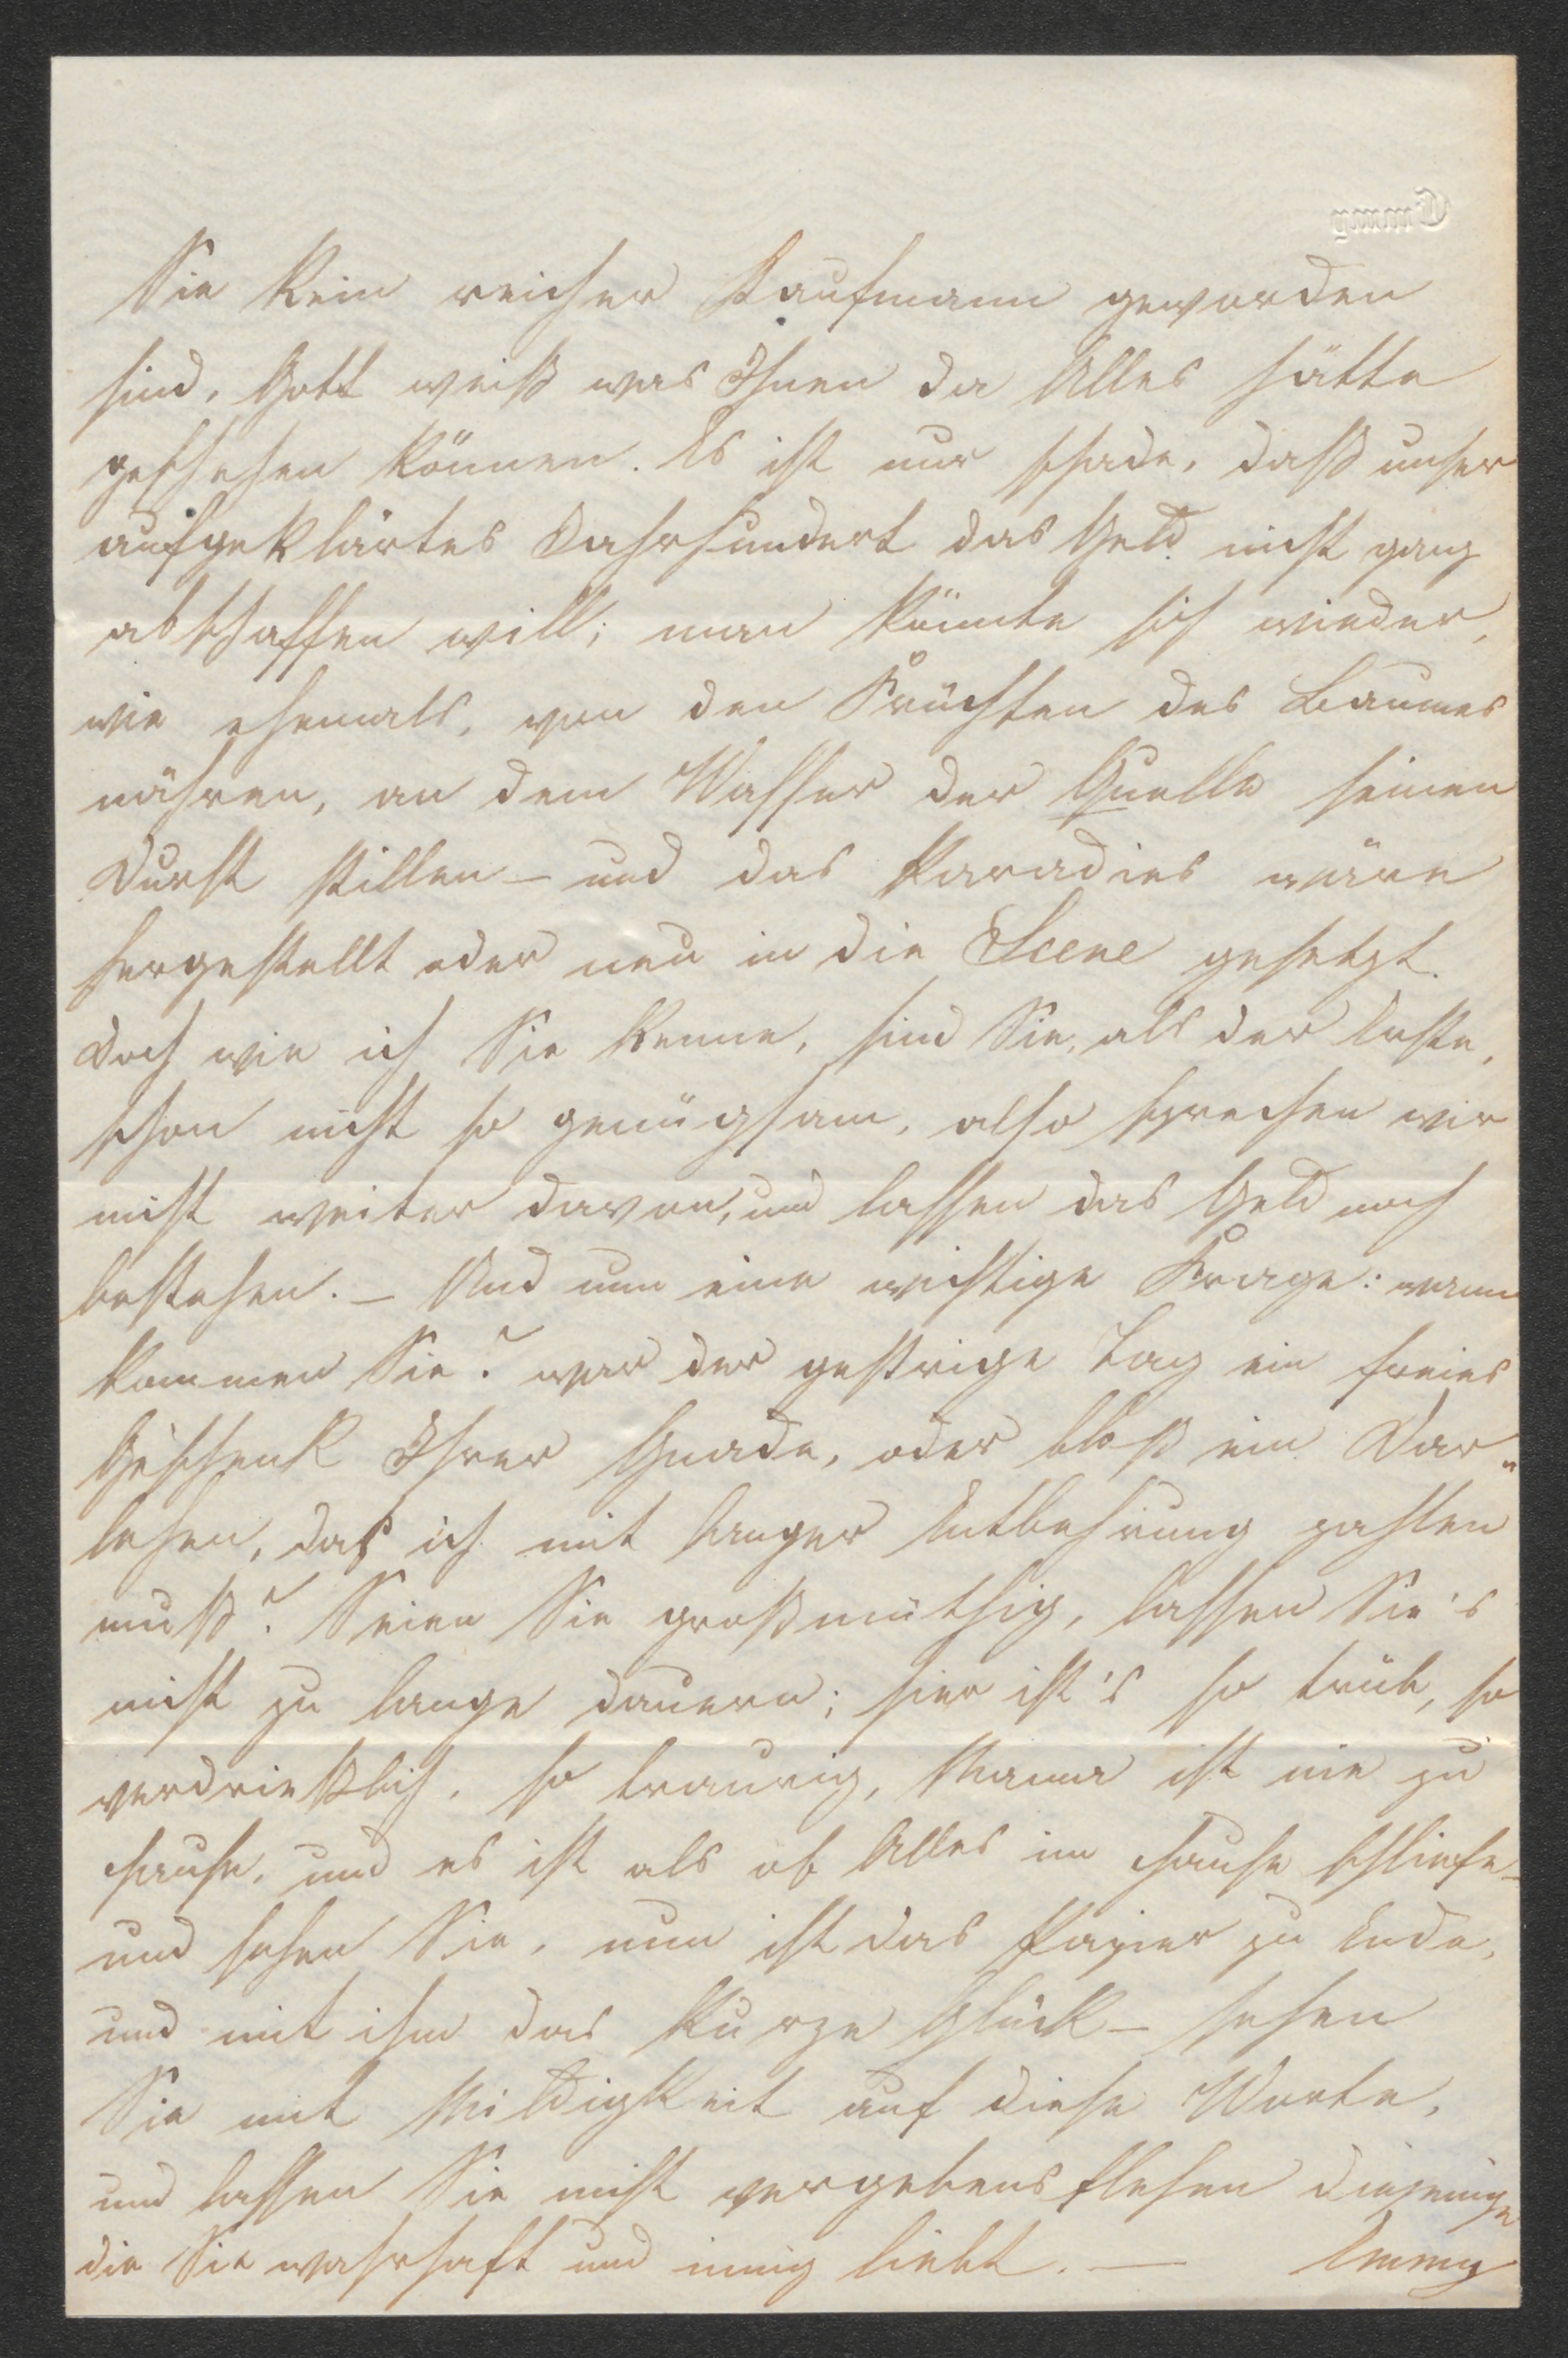 Emmy
Sie kein reicher Kaufmann geworden
sind, Gott weiß was Ihnen da Alles hätte
geschehen können. Es ist nur schade, daß unser
aufgeklärtes Jahrhundert das Geld nicht ganz
abschaffen will; man könnte sich wieder,
wie ehemals, von den Früchten des Baumes
nähren, an dem Wasser der Quelle seinen
Durst stillen – und das Paradies wäre
hergestellt oder neu in die Scene gesetzt.
Doch wie ich Sie kenne, sind Sie, als der Erste,
schon nicht so genügsam, also sprechen wir
nicht weiter davon, und lassen das Geld noch
bestehen. – Und nun eine wichtige Frage: wann
kommen Sie? war der gestrige Tag ein freies
Geschenk Ihrer Gnade, oder bloß ein Dar-
lehen, das ich mit langer Entbehrung zahlen
muß? Seien Sie großmüthig, lassen Sie's
nicht zu lange dauern; hier ist's so trüb, so
verdrießlich, so traurig, Mama ist nie zu
Hause, und es ist als ob Alles im Hause schliefe –
und sehen Sie, nun ist das Papier zu Ende,
und mit ihm das kurze Glück – sehen
Sie mit Mildigkeit auf diese Worte,
und lassen Sie nicht vergebens flehen diejenige
die Sie wahrhaft und innig liebt. — Emmy